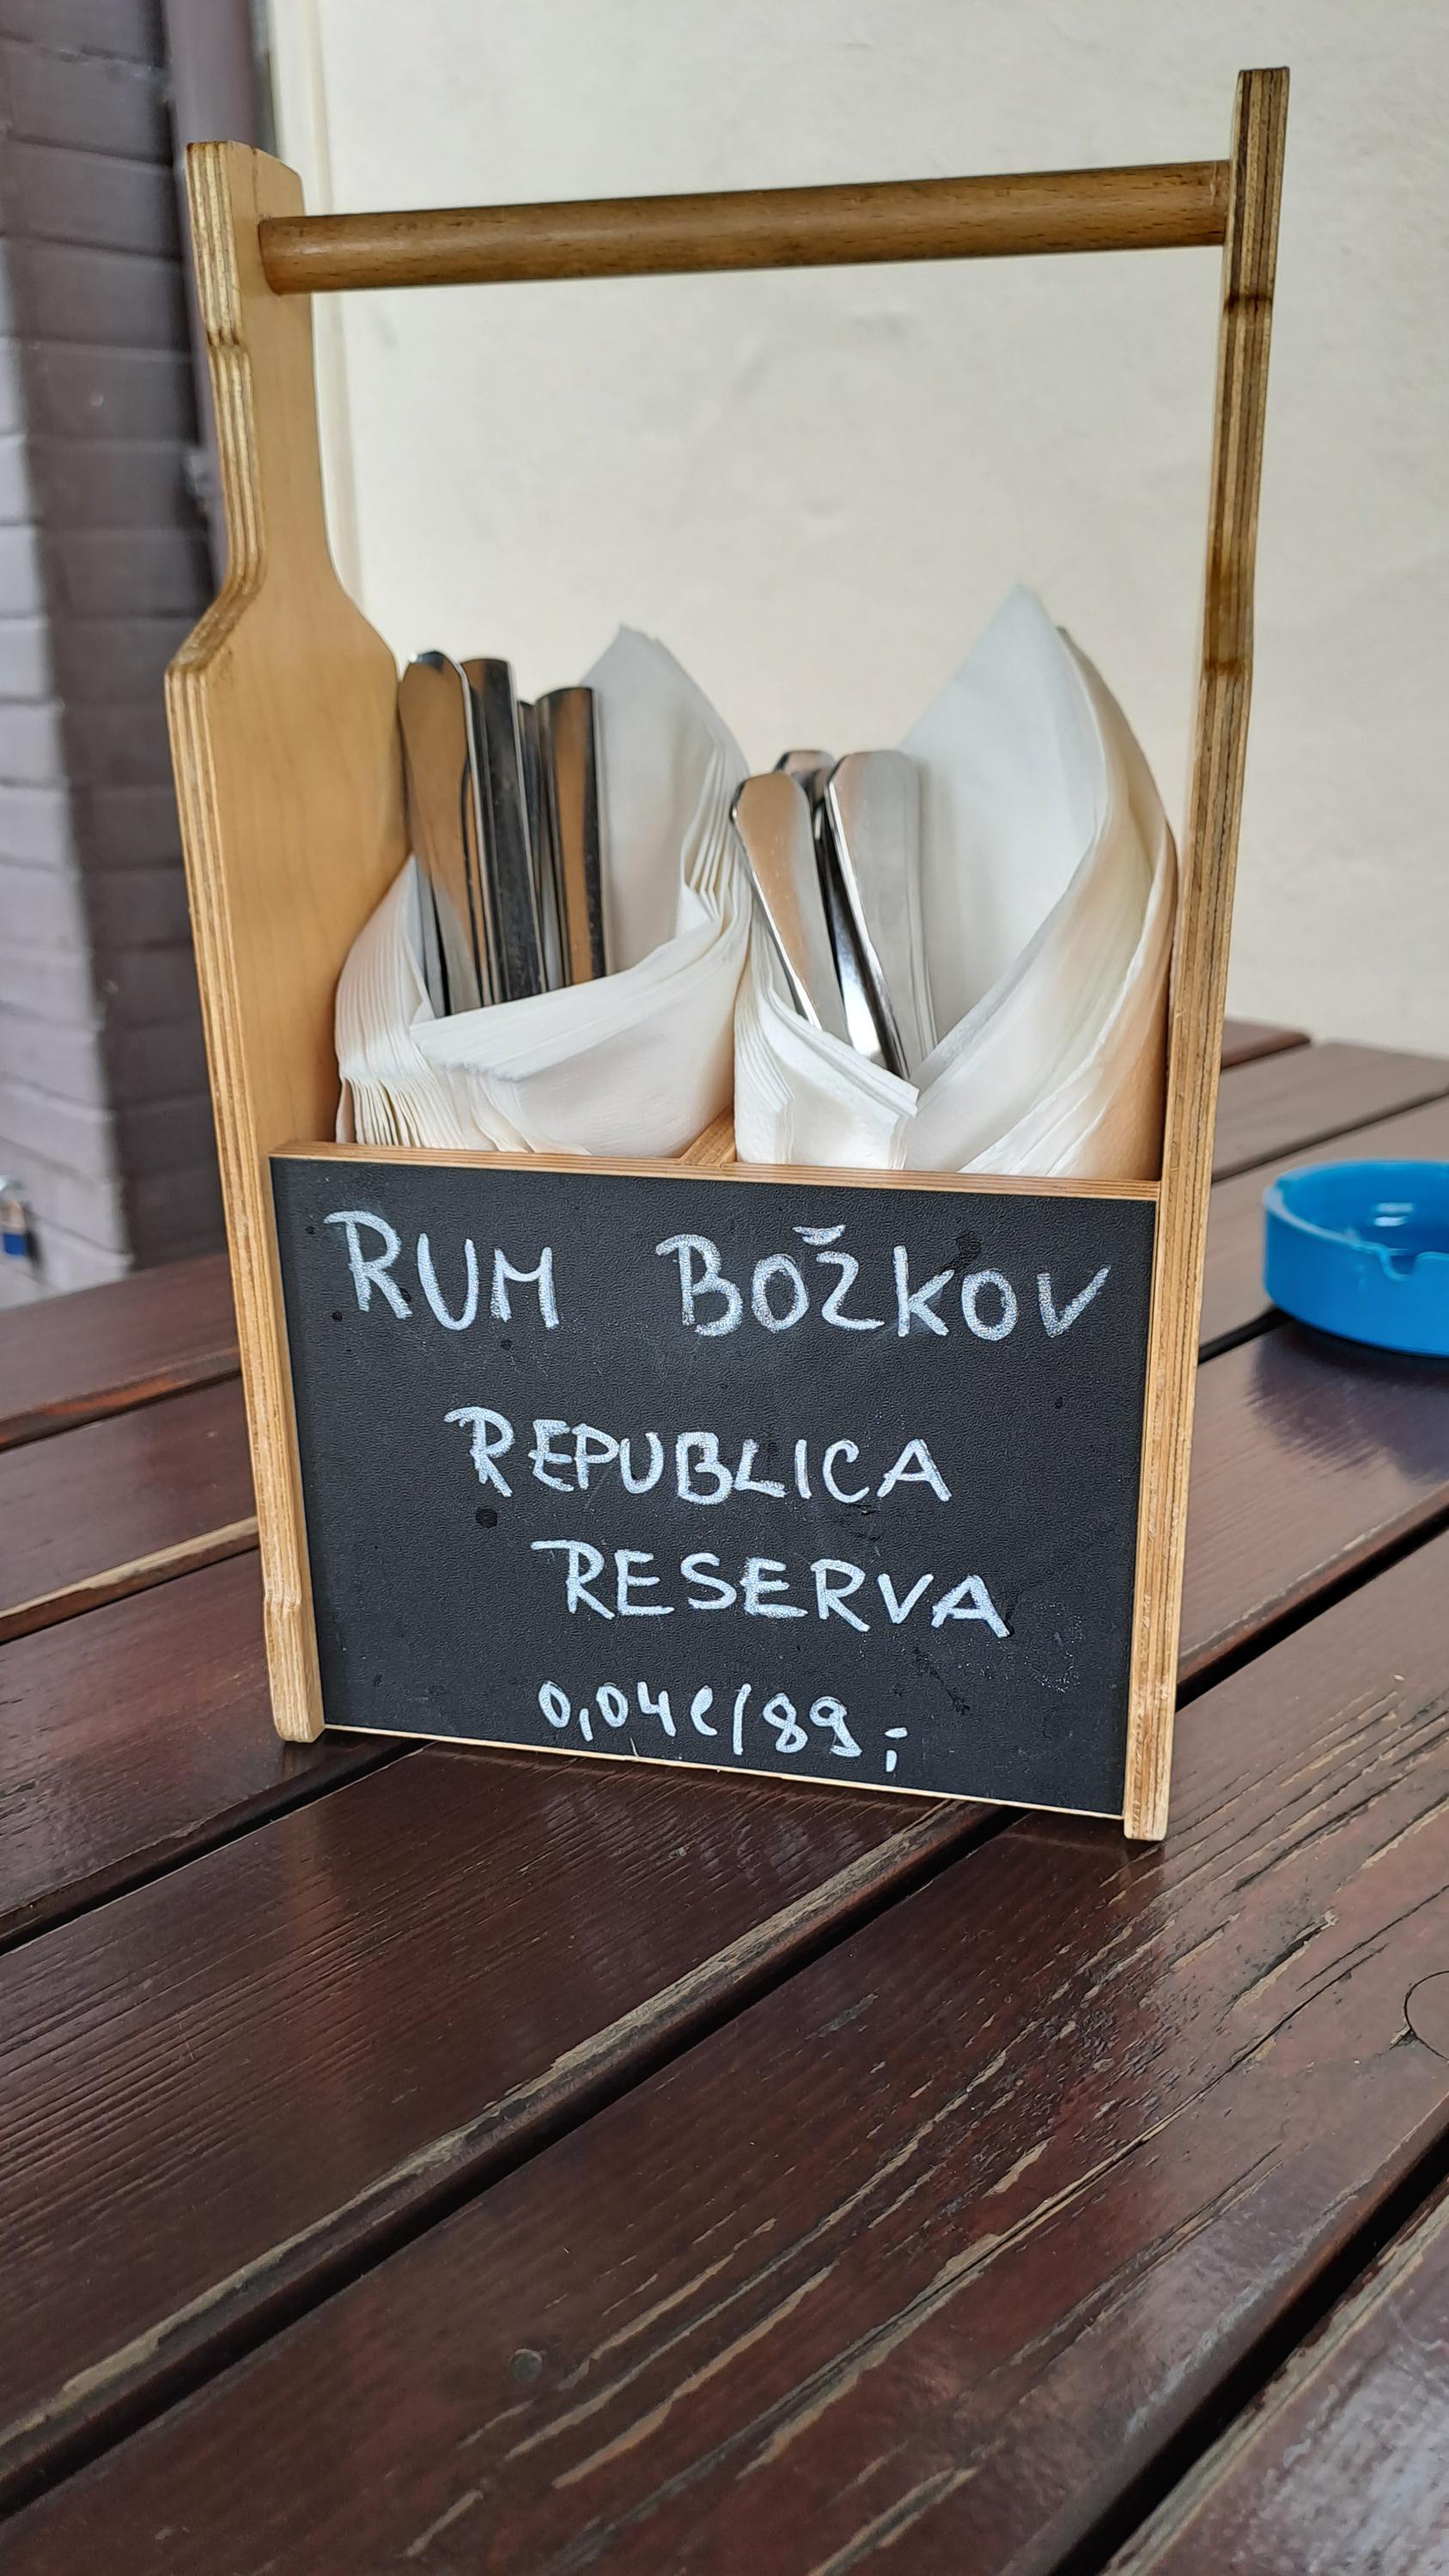 RUM BOŽKOV
REPUBLICA
RESERVA
0,04l/89,-